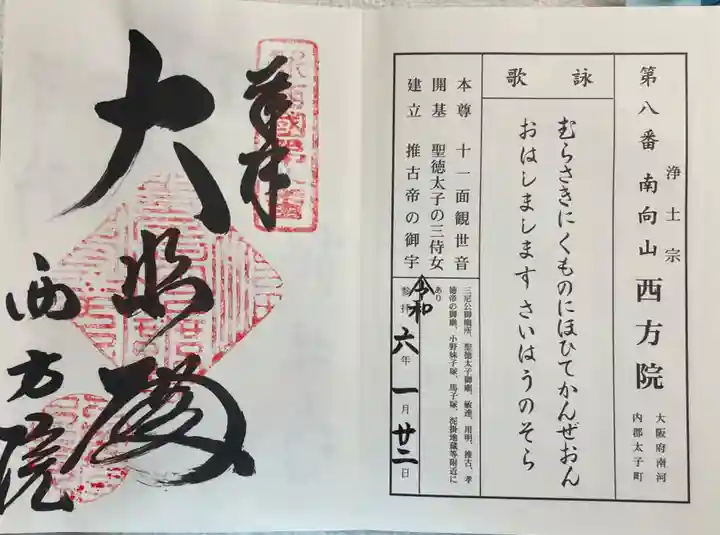 第八番 南向山 西方院
浄土宗
大阪府南河
内郡太子町
詠歌
むらさきにくものにほひてかんぜおん
おはしまします さいはうのそら
本尊 十一面観世音
開基 聖徳太子の三侍女
建立 推古帝の御宇
三尼公御廟所、聖徳太子御廟、敏達、用明、推古、孝
徳帝の御廟、小野妹子塚、馬子塚、泥掛地蔵等附近に
あり
令和六年一月廿二日
奉拝
大悲殿
西方院